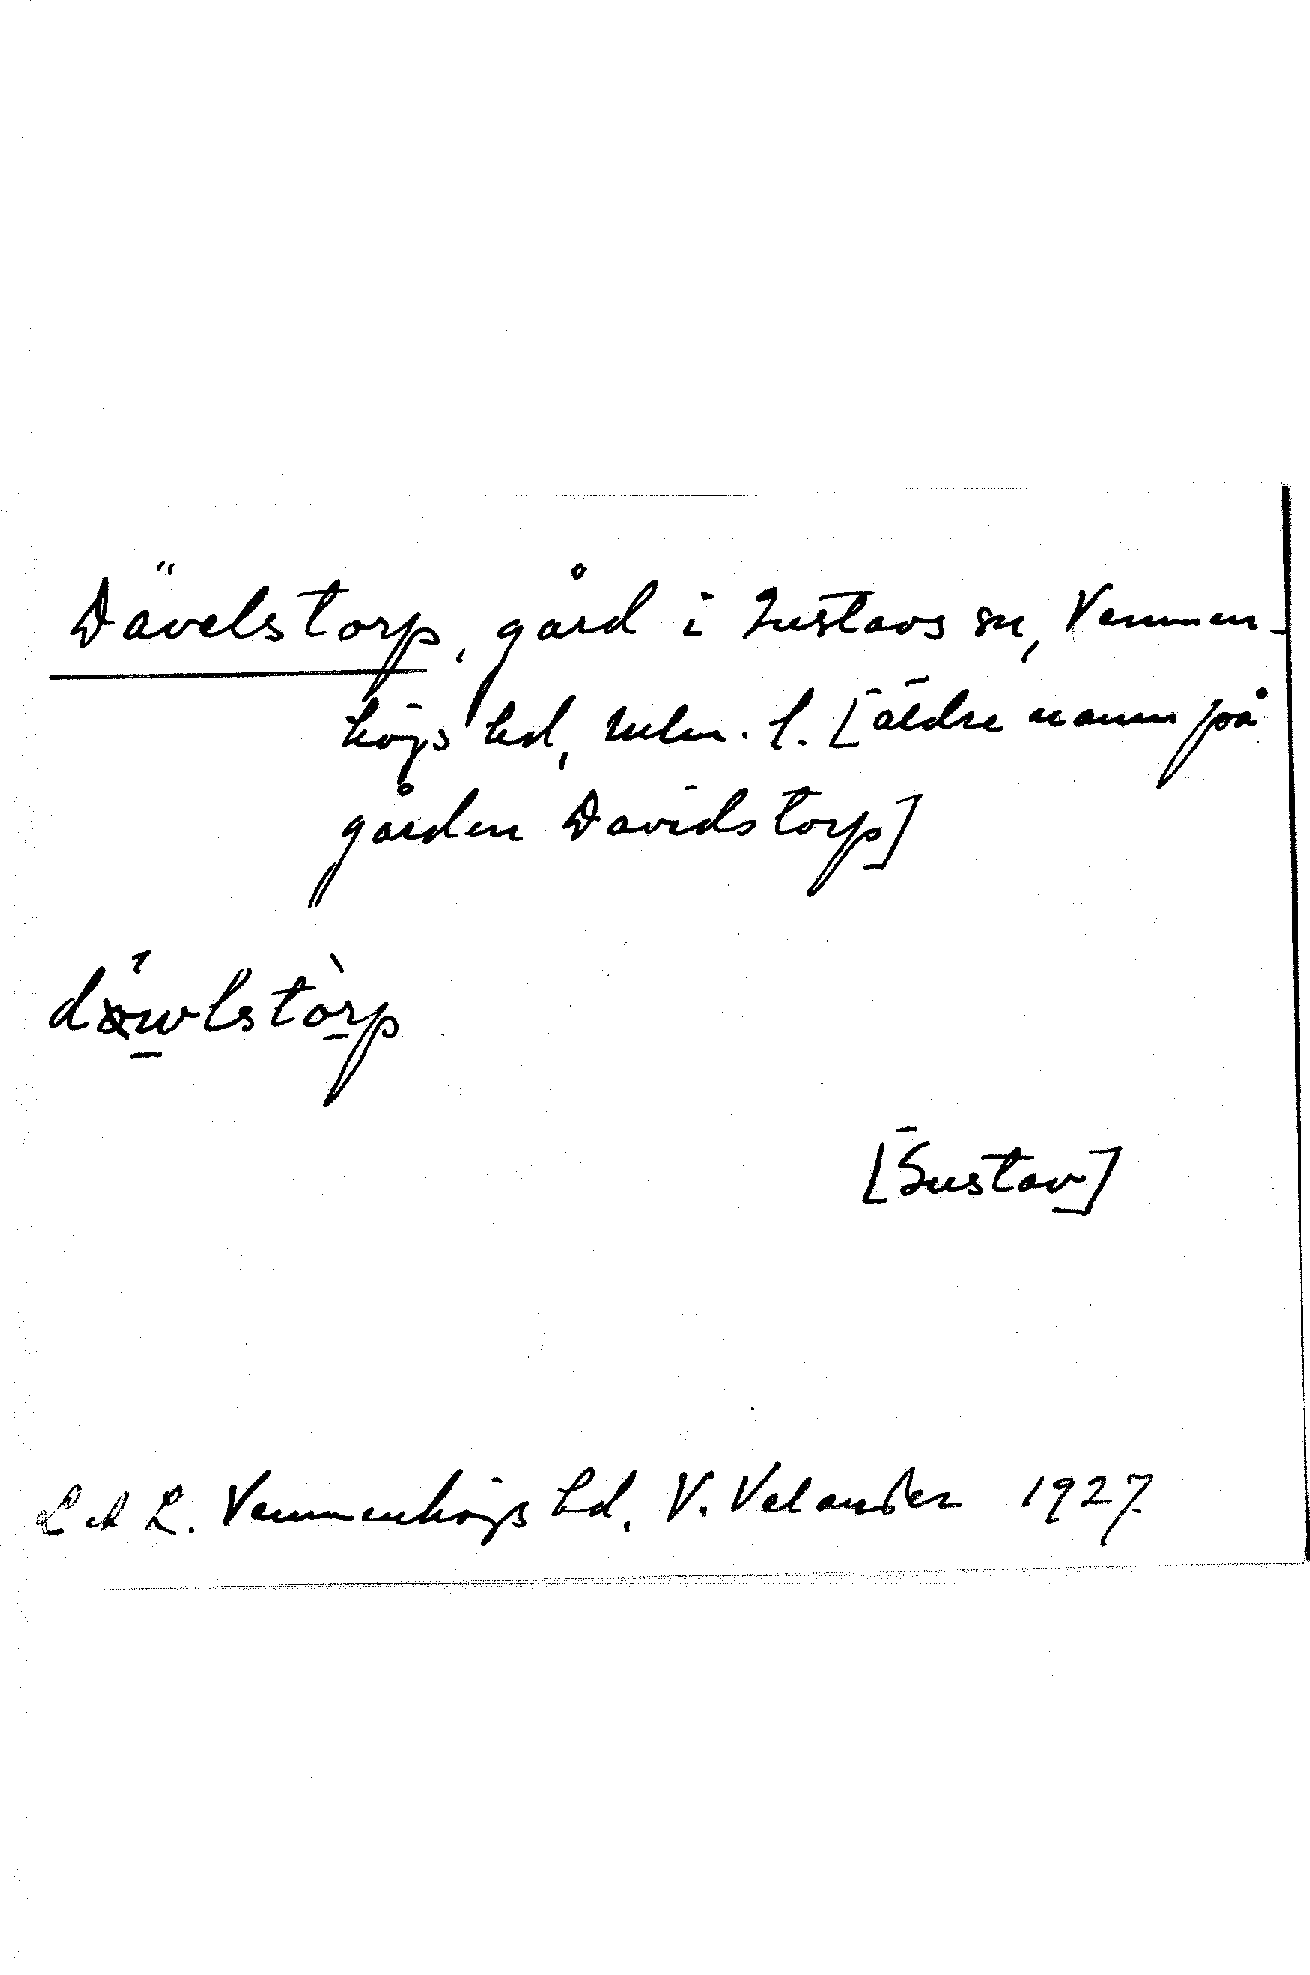 Dävelstorp, gård i Gustavs sn, Vemmen-
högs hd, Mlm. l. [äldre namn på
gården Davidstorp]
[Gustav]
L A L. Vemmenhögs hd. V. Velander 1927